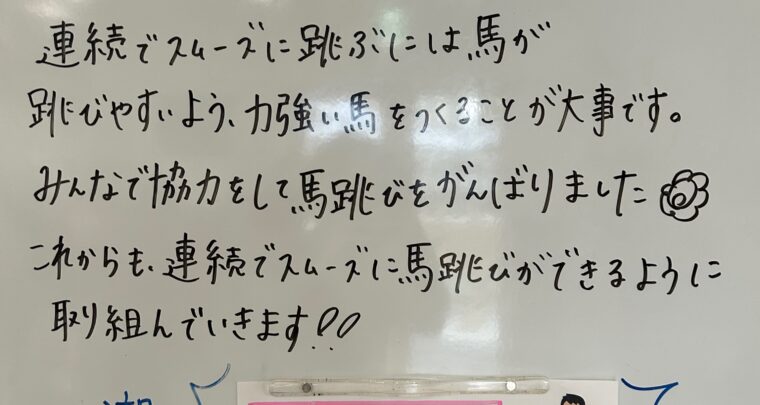 連続でスムーズに跳ぶには馬が
跳びやすいよう、力強い馬をつくることが大事です。
みんなで協力をして馬跳びをがんばりました
これからも、連続でスムーズに馬跳びができるように
取り組んでいきます!!